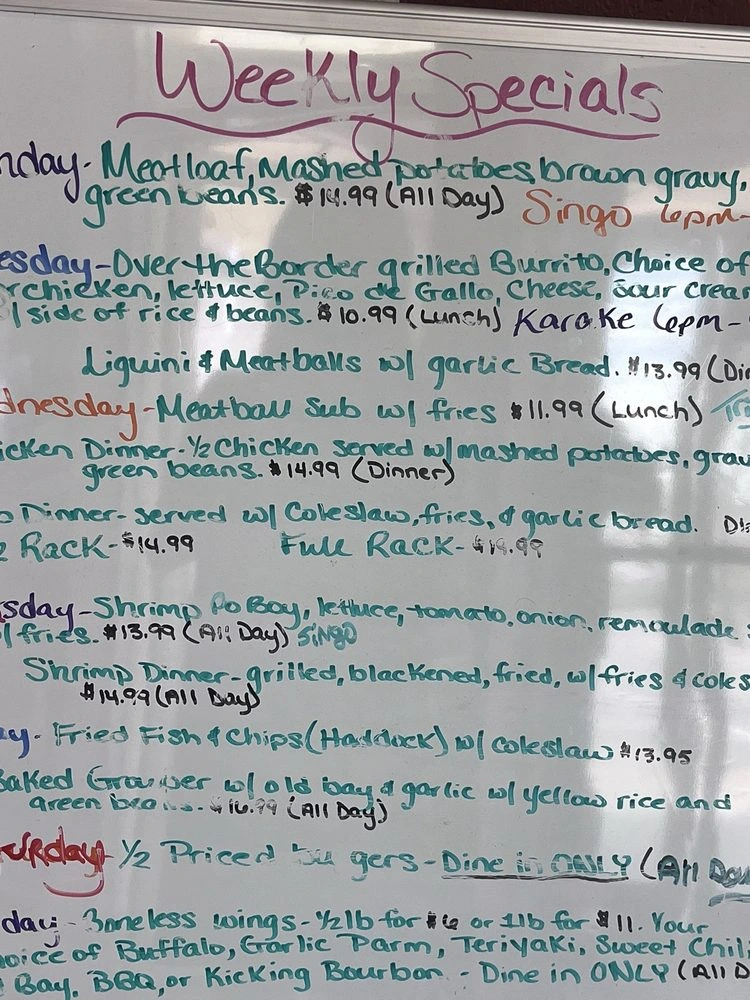 Weekly Specials
nday- Meatloaf, Mashed potatoes, brown gravy,
green beans. $14.99 (All Day) Singo 6pm-
esday- Over the Border grilled Burrito, Choice of
rchicken, lettuce, Pico de Gallo, Cheese, Sour Crear
/ side of rice & beans. $10.99 (Lunch) Karoke 6pm-
Liguini & Meatballs w/ garlic Bread. $13.99 (Din
dnesday- Meatball Sub w/ fries $11.99 (Lunch)
icken Dinner- ½ Chicken served w/ mashed potatoes, grav
green beans. $14.99 (Dinner)
Dinner- served w/ Coleslaw, fries, & garlic bread.
Rack- $14.99 Full Rack-
sday- Shrimp Po Boy, lettuce, tomato, onion, remoulade
/ fries. $13.99 (All Day) Singo
Shrimp Dinner- grilled, blackened, fried, w/ fries & coles
$14.99 (All Day)
ay- Fried Fish & Chips (Haddock) w/ coleslaw $13.95
Baked Grouper w/ old bay & garlic w/ yellow rice and
green beans. $16.99 (All Day)
urday- ½ Priced bu gers- Dine in ONLY (All Day
day- Boneless wings- ½ lb for $6 or 1lb for $11. Your
hoice of Buffalo, Garlic Parm, Teriyaki, Sweet Chili
Bay, BBQ, or Kicking Bourbon - Dine in ONLY (All D